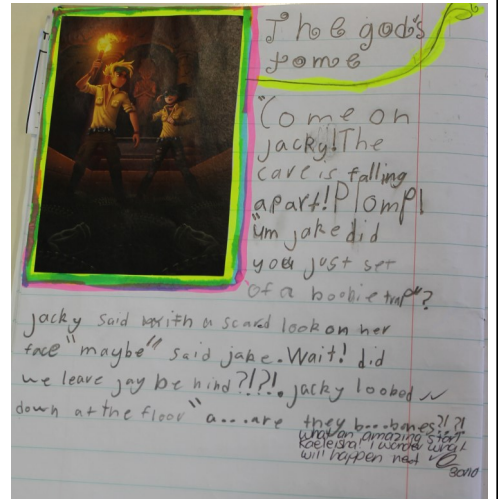 The god's
tome
"Come on
jacky! The
cave is falling
apart! Plomp!
"um jake did
you just set
of a boobie trap"?
jacky said with a scared look on her
face "maybe" said jake. Wait! did
we leave jay be hind?!?!. jacky looked
down at the floor "a...are they b...bones?!?!
what an amazing start
Kaeleisha! I wonder what
will happen next
30/10